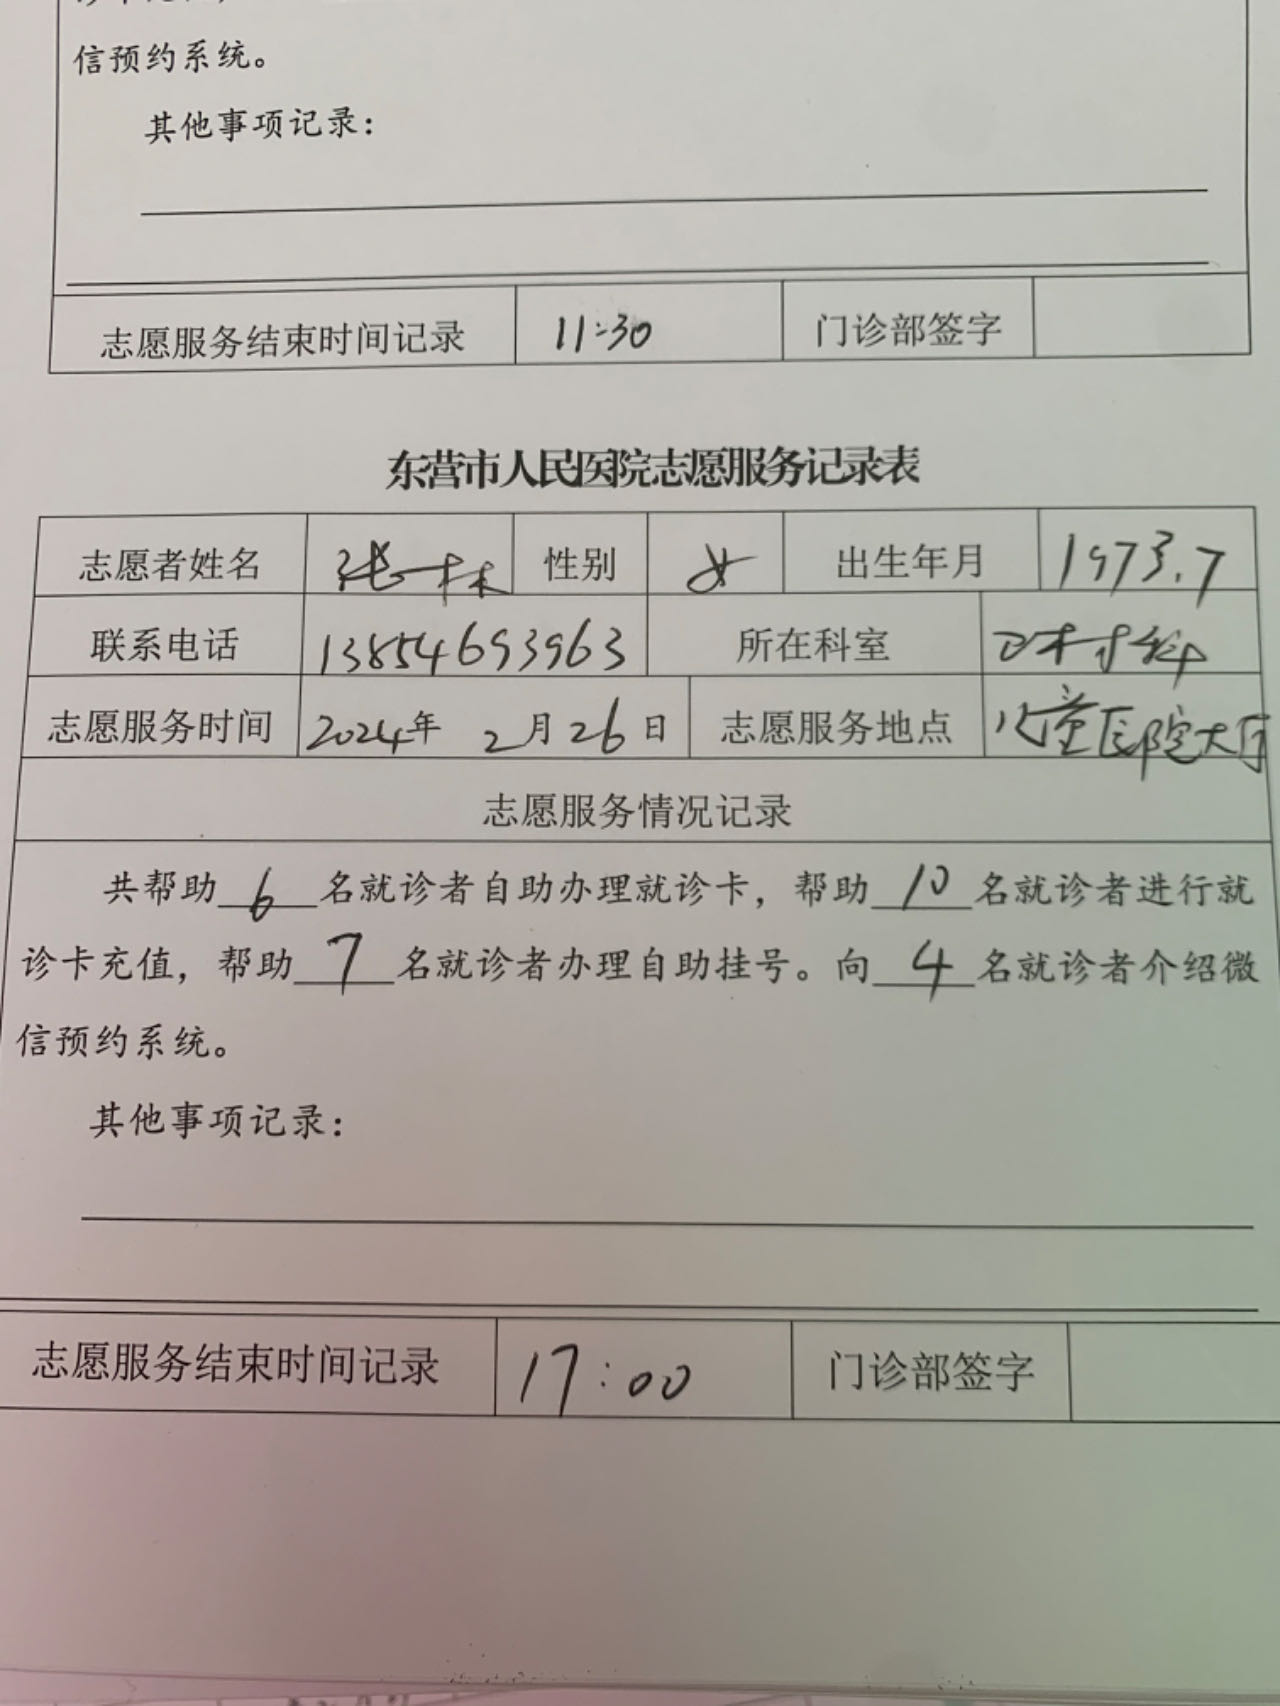 信预约系统。
其他事项记录：
志愿服务结束时间记录 11:30 门诊部签字
东营市人民医院志愿服务记录表
志愿者姓名 性别 女 出生年月 1973.7
联系电话 13854693963 所在科室
志愿服务时间 2024年 2月26日 志愿服务地点 儿童医院大厅
志愿服务情况记录
共帮助 6 名就诊者自助办理就诊卡，帮助 10 名就诊者进行就
诊卡充值，帮助 7 名就诊者办理自助挂号。向 4 名就诊者介绍微
信预约系统。
其他事项记录：
志愿服务结束时间记录 17:00 门诊部签字